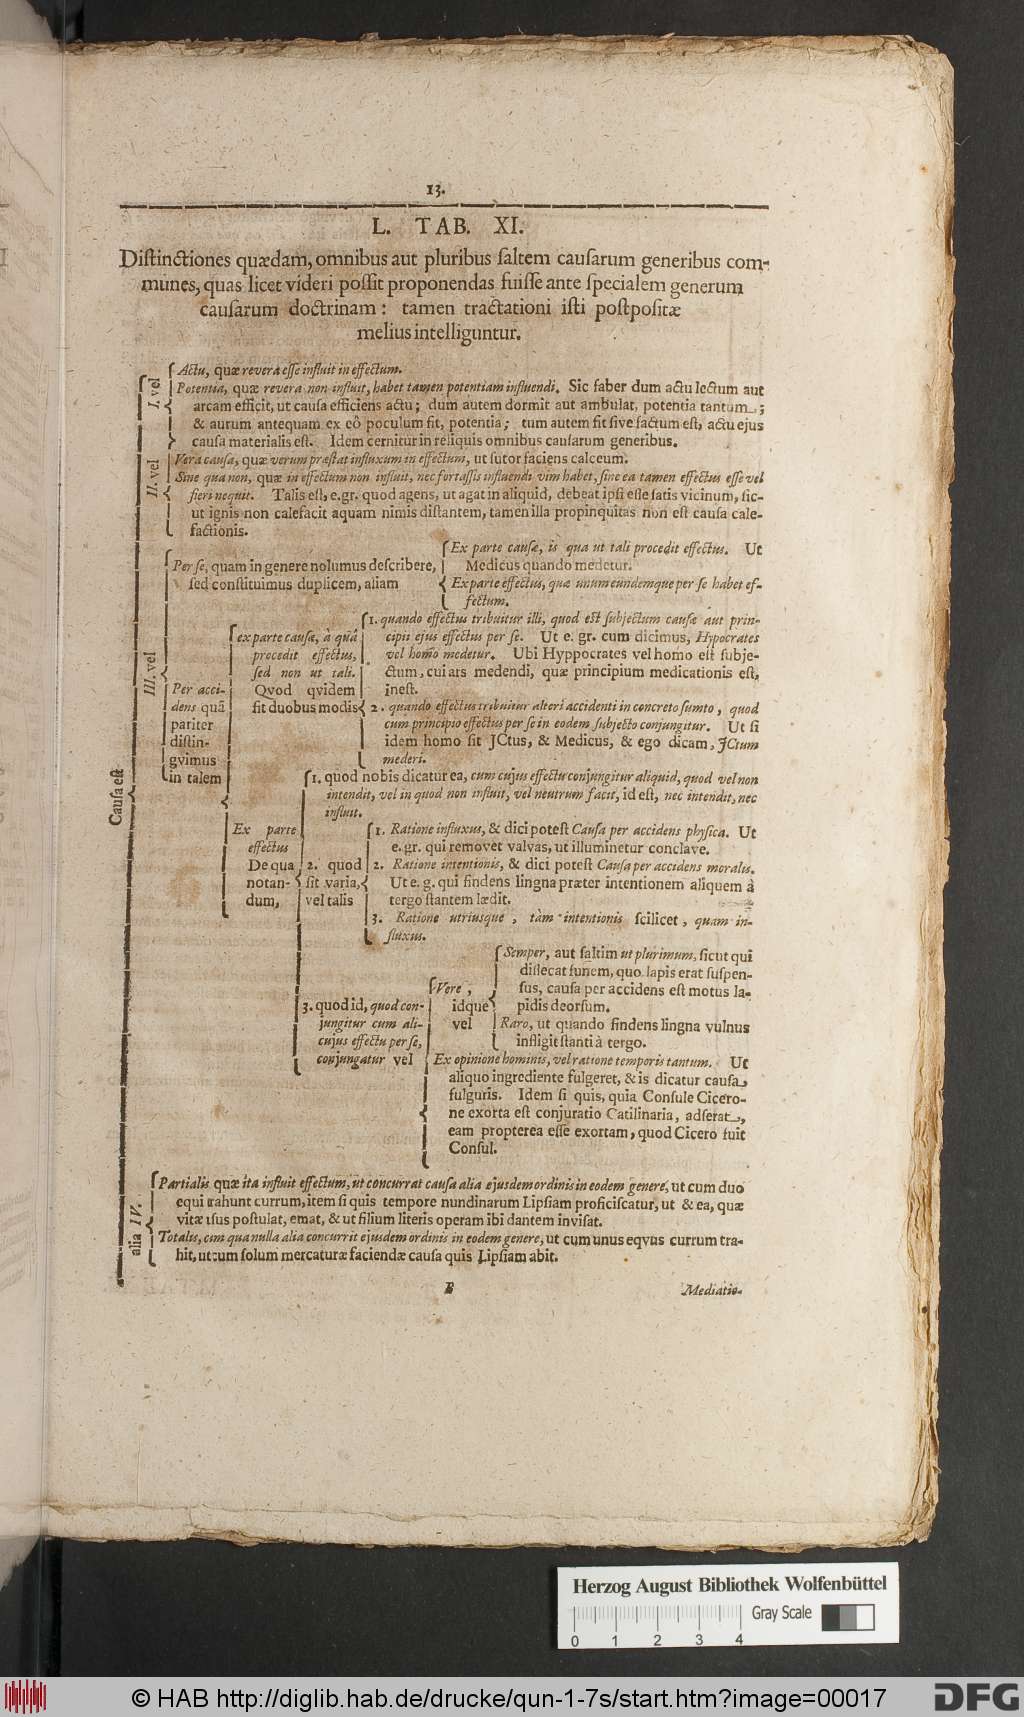 13.
L. TAB. XI.
Distinctiones quædam, omnibus aut pluribus saltem causarum generibus com-
munes, quas licet videri possit proponendas fuisse ante specialem generum
causarum doctrinam: tamen tractationi isti postpositæ
melius intelliguntur.
Causa est
I. vel
Actu, quæ revera esse influit in effectum.
Potentia, quæ revera non influit, habet tamen potentiam influendi. Sic faber dum actu lectum aut
arcam efficit, ut causa efficiens actu; dum autem dormit aut ambulat, potentia tantum;
& aurum antequam ex eô poculum fit, potentia; tum autem fit sive factum est, actu ejus
causa materialis est. Idem cernitur in reliquis omnibus causarum generibus.
II. vel
Vera causa, quæ verum præstat influxum in effectum, ut sutor faciens calceum.
Sine qua non, quæ in effectum non influit, nec fortassis influendi vim habet, sine ea tamen effectus esse vel
fieri nequit. Talis est, e.gr. quod agens, ut agat in aliquid, debeat ipsi esse satis vicinum, sic-
ut ignis non calefacit aquam nimis distantem, tamen illa propinquitas non est causa cale-
factionis.
III. vel
Per se, quam in genere nolumus describere,
sed constituimus duplicem, aliam
Ex parte causæ, is qua ut tali procedit effectus. Ut
Medicus quando medetur.
Ex parte effectus, quæ unum eundemque per se habet ef-
fectum.
Per acci-
dens quã
pariter
distin-
gvimus
in talem
ex parte causæ, à quâ
procedit effectus,
sed non ut tali.
Qvod qvidem
fit duobus modis
1. quando effectus tribuitur illi, quod est subjectum causæ aut prin-
cipii ejus effectus per se. Ut e. gr. cum dicimus, Hypocrates
vel homo medetur. Ubi Hyppocrates vel homo est subje-
ctum, cui ars medendi, quæ principium medicationis est,
inest.
2. quando effectus tribuitur alteri accidenti in concreto sumto, quod
cum principio effectus per se in eodem subjecto conjungitur. Ut si
idem homo sit JCtus, & Medicus, & ego dicam, JCtum
mederi.
Ex parte
effectus
De qua
notan-
dum,
1. quod nobis dicatur ea, cum cujus effectu conjungitur aliquid, quod vel non
intendit, vel in quod non influit, vel neutrum facit, id est, nec intendit, nec
influit.
2. quod
sit varia,
vel talis
1. Ratione influxus, & dici potest Causa per accidens physica. Ut
e. gr. qui removet valvas, ut illuminetur conclave.
2. Ratione intentionis, & dici potest Causa per accidens moralis.
Ut e. g. qui findens lingna præter intentionem aliquem à
tergo stantem lædit.
3. Ratione utriusque, tàm intentionis scilicet, quam in-
fluxus.
3. quod id, quod con-
jungitur cum ali-
cujus effectu per se,
conjungatur vel
Vere,
idque
vel
Semper, aut saltim ut plurimum, sicut qui
dissecat funem, quo lapis erat suspen-
sus, causa per accidens est motus la-
pidis deorsum.
Raro, ut quando findens lingna vulnus
infligit stanti à tergo.
Ex opinione hominis, vel ratione temporis tantum. Ut
aliquo ingrediente fulgeret, & is dicatur causa
fulguris. Idem si quis, quia Consule Cicero-
ne exorta est conjuratio Catilinaria, adserat,
eam propterea esse exortam, quod Cicero fuit
Consul.
alia IV.
Partialis quæ ita influit effectum, ut concurrat causa alia ejusdem ordinis in eodem genere, ut cum duo
equi trahunt currum, item si quis tempore nundinarum Lipsiam proficiscatur, ut & ea, quæ
vitæ usus postulat, emat, & ut filium literis operam ibi dantem invisat.
Totalis, cum qua nulla alia concurrit ejusdem ordinis in eodem genere, ut cum unus eqvus currum tra-
hit, ut cum solum mercaturæ faciendæ causa quis Lipsiam abit.
B
Mediatio-
Herzog August Bibliothek Wolfenbüttel
Gray Scale
0 1 2 3 4
© HAB http://diglib.hab.de/drucke/qun-1-7s/start.htm?image=00017
DFG